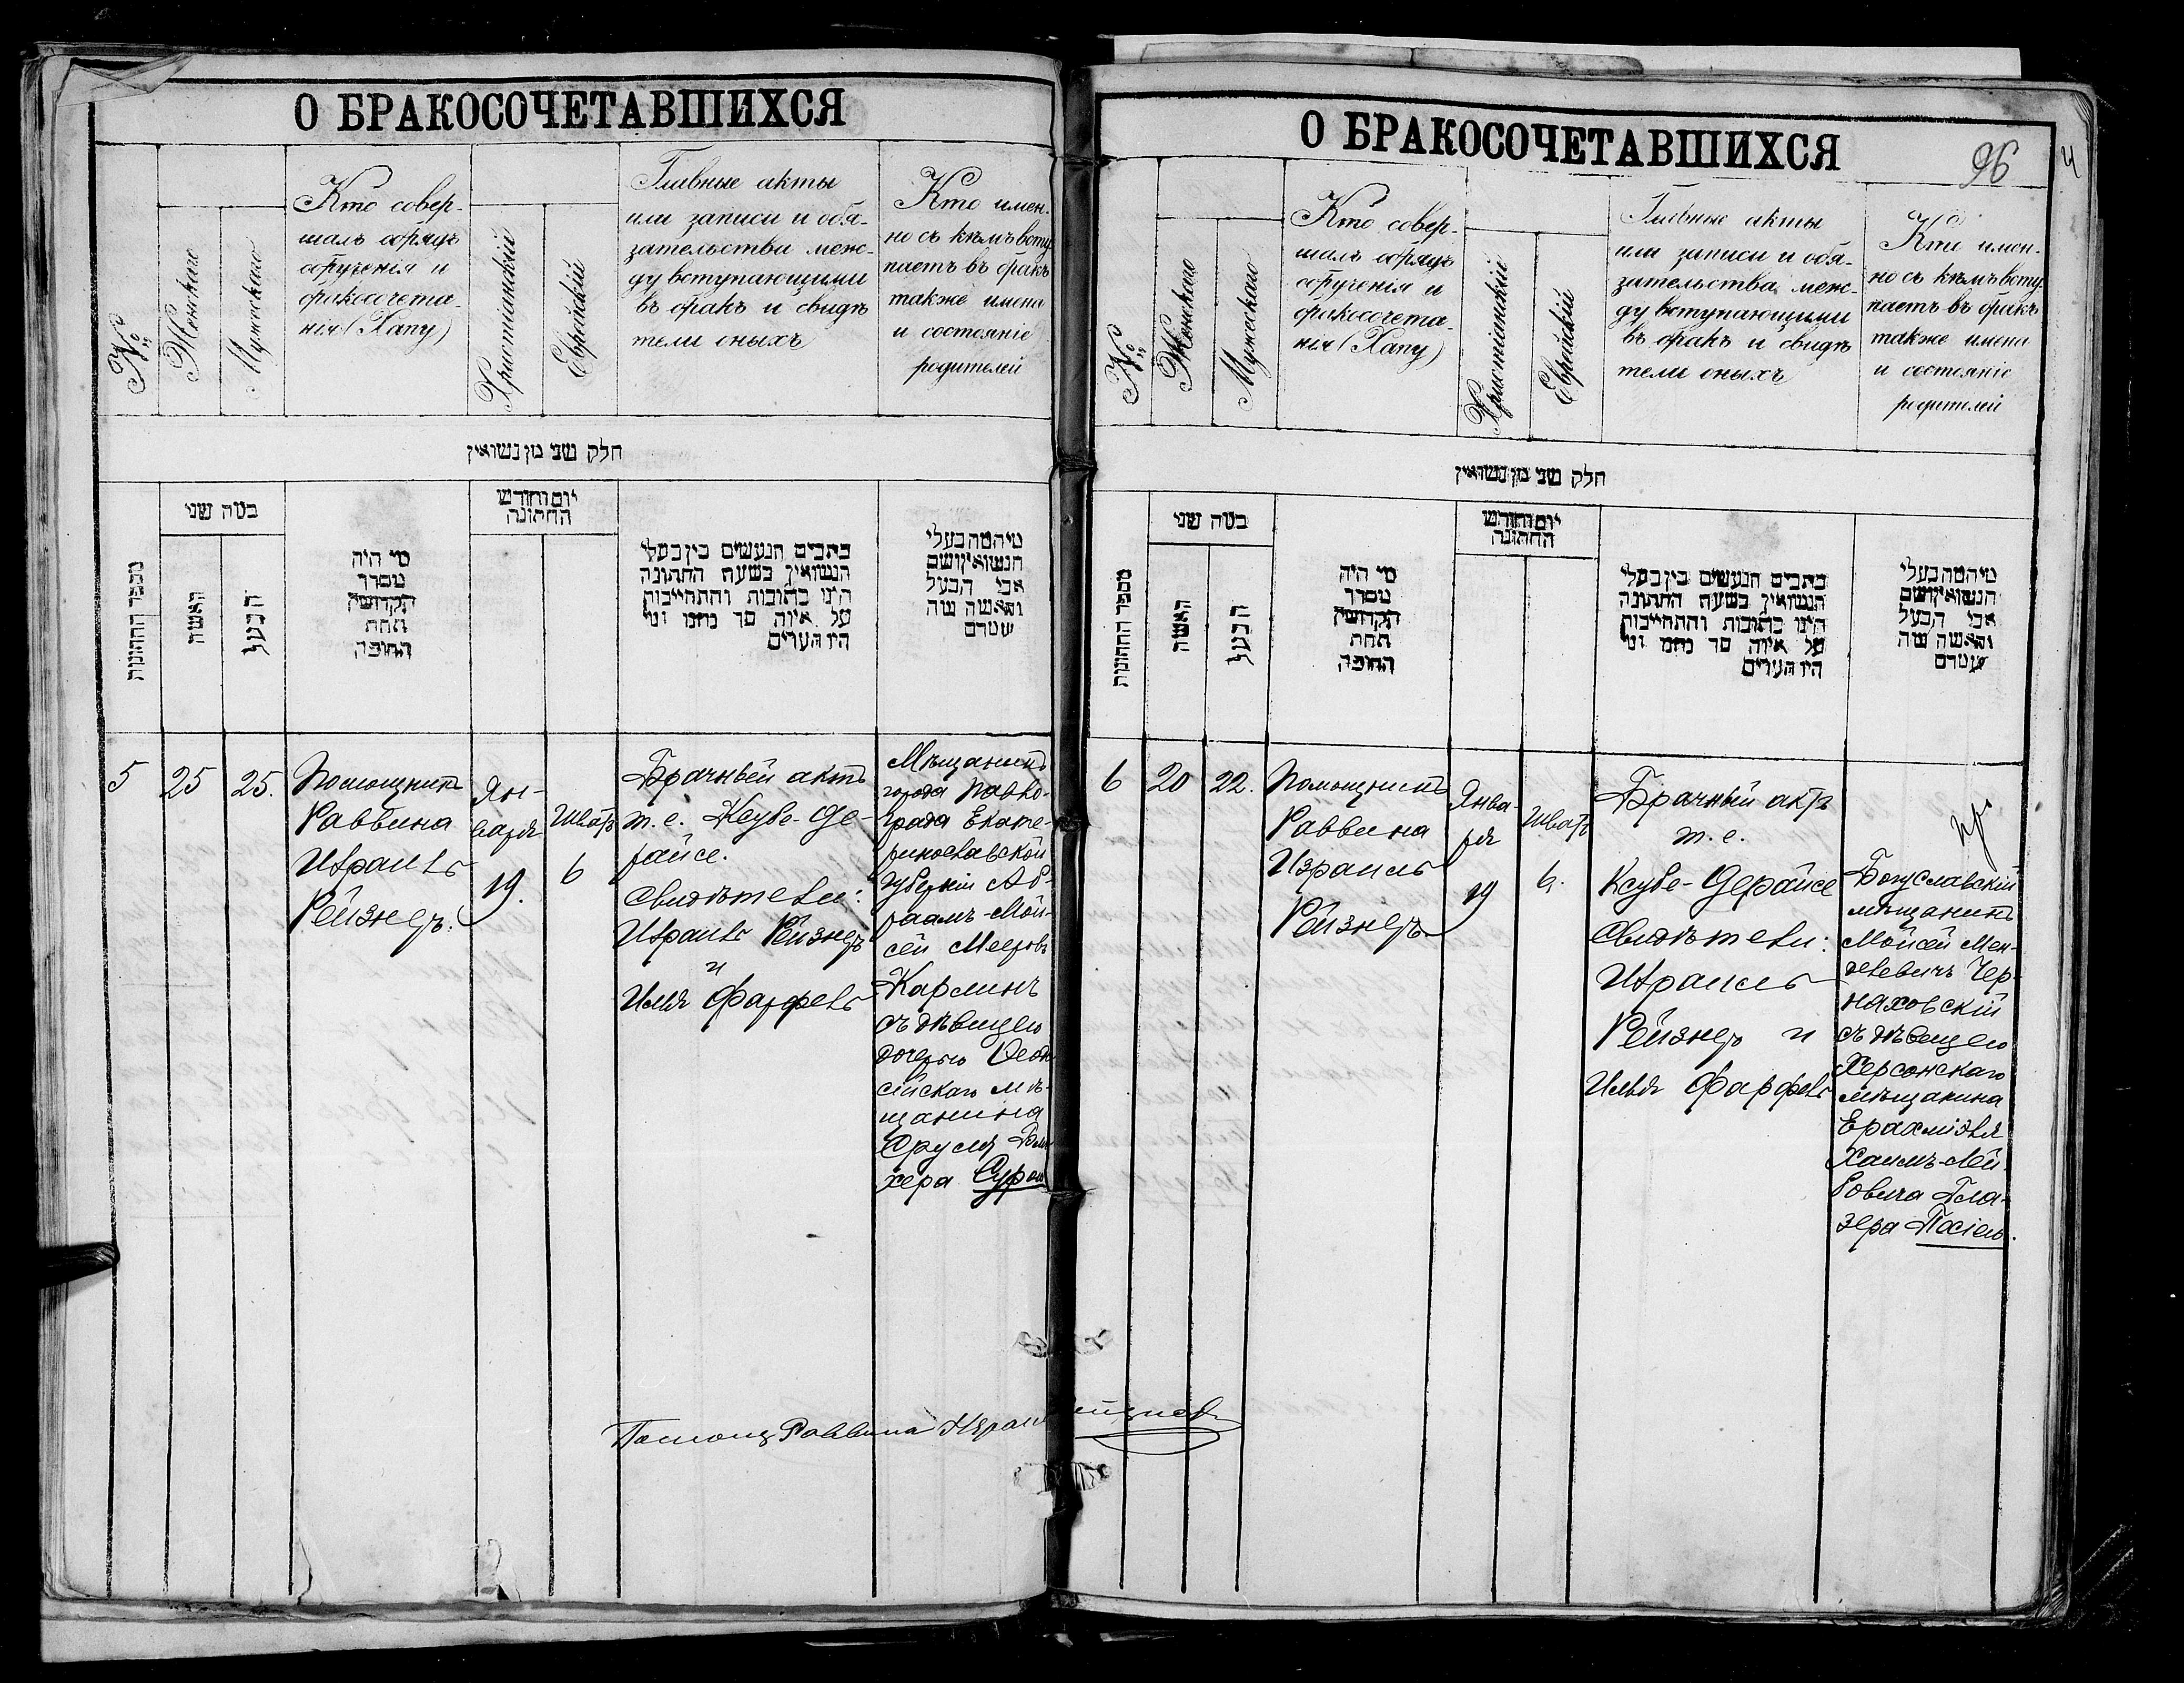 О БРАКОСОЧЕТАВШИХСЯ
№
Женскаго
Мужескаго
Кто совер-
шалъ обрядъ
обрученія и
бракосочета-
нія (Хапу)
Христіанскій
Еврейскій
Главные акты
или записи и обя-
зательства меж-
ду вступающими
въ бракъ и свидѣ
тели оныхъ
Кто имен-
но съ кѣмъ всту
паетъ въ бракъ
также имена
и состояніе
родителей
חלק שני מן נשואין
מספר החתונות
כמה שני
האשה
הבעל
מי היה
מסדר
הקדושין
תחת
החופה
יום וחודש
החתונה
כתבים הנעשים בין בעלי
הנשואין בשעת החתונה
היינו כתובות והתחייבות
על איזה סך נחמו ומי
היו העדים
מיהמה בעלי
הנשואין ושם
אבי הבעל
והאשה מה
שטרם
5
25
25.
Помощникъ
Раввина
Израиль
Рейзнеръ.
Ян-
варя
19.
Шватъ
6
Брачный актъ
т. е. Ксубе-Де-
райсе.
Свидѣтели:
Израиль Рейзнеръ
и
Илья Фарфель
Мѣщанинъ
города Павло-
града Екате-
ринославской
губерніи Аб-
раамъ-Мой-
сей Мееровъ
Карлинъ
съ дѣвицею
дочерью Ѳеодо
сійскаго мѣ-
щанина
Сруля
хера Сурою
Помощ Раввина Израиль Рейзнеръ
О БРАКОСОЧЕТАВШИХСЯ
96
4
№
Женскаго
Мужескаго
Кто совер-
шалъ обрядъ
обрученія и
бракосочета-
нія (Хапу)
Христіанскій
Еврейскій
Главные акты
или записи и обя-
зательства меж-
ду вступающими
въ бракъ и свидѣ
тели оныхъ
Кто имен-
но съ кѣмъ всту
паетъ въ бракъ
также имена
и состояніе
родителей
חלק שני מן נשואין
מספר החתונות
כמה שני
האשה
הבעל
מי היה
מסדר
הקדושין
תחת
החופה
יום וחודש
החתונה
כתבים הנעשים בין בעלי
הנשואין בשעת החתונה
היינו כתובות והתחייבות
על איזה סך נחמו ומי
היו העדים
מיהמה בעלי
הנשואין ושם
אבי הבעל
והאשה מה
שטרם
6
20
22.
Помощникъ
Раввина
Израиль
Рейзнеръ
Янва-
ря
19
Шватъ
6.
Брачный актъ
т. е.
Ксубе-Дерайсе
Свидѣтели:
Израиль
Рейзнеръ и
Илья Фарфель
Богуславскій
мѣщанинъ
Мойсей Мен-
делевичъ Чер-
няховскій
съ дѣвицею
Херсонскаго
мѣщанина
Ерахміэля
Хаимъ-Лей-
бовича Гла-
зера Песіею.